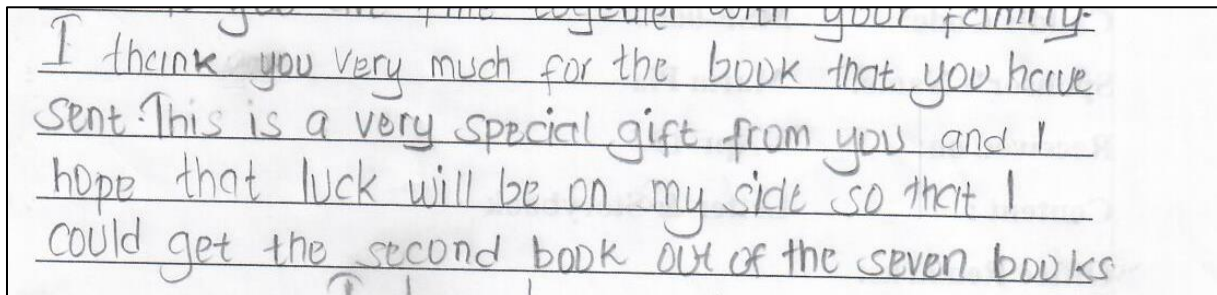 you are fine together with your family.
I thank you very much for the book that you have
sent. This is a very special gift from you and I
hope that luck will be on my side so that I
could get the second book out of the seven books